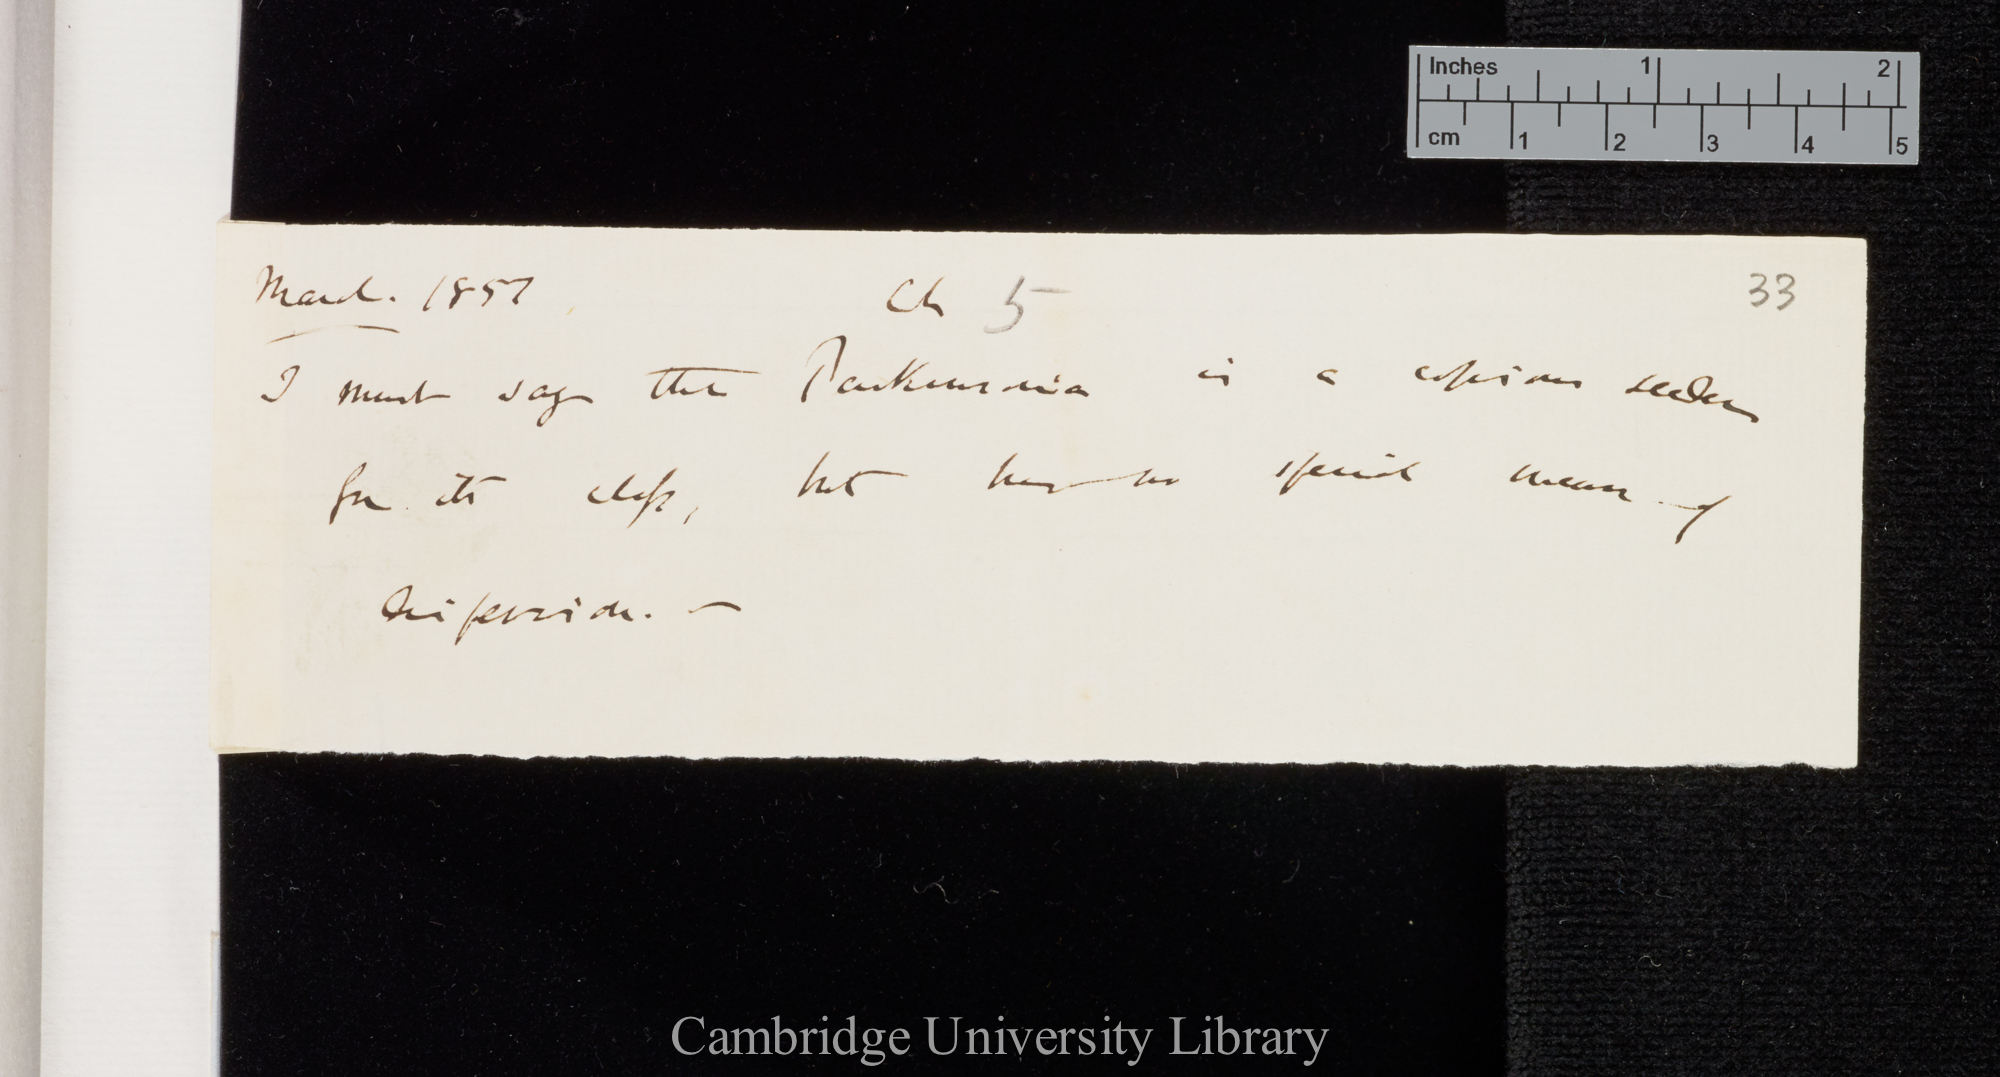 Inches 1 2
cm 1 2 3 4 5
March. 1857 Ch 5 33
I must say the Parkinsonia is a copious seeder
for its class, but has no special means of
dispersion. —
Cambridge University Library